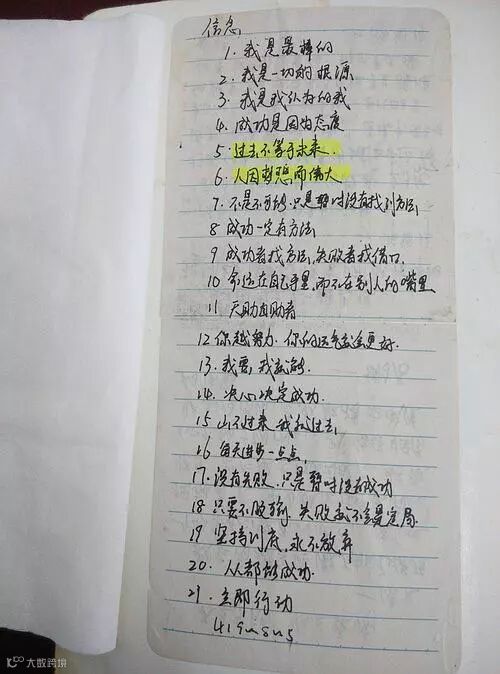 信念
1. 我是最棒的
2. 我是一切的根源
3. 我是我认为的我
4. 成功是因为态度
5 过去不等于未来.
6. 人因梦想而伟大
7 不是不可能.只是暂时没有找到方法
8 成功一定有方法
9 成功者找方法,失败者找借口.
10 命运在自己手里,而不在别人的嘴里
11 天助自助者
12 你越努力.你的运气就会更好.
13. 我要,我就能
14. 决心决定成功.
15 山不过来,我就过去,
16 每天进步一点点,
17. 没有失败.只是暂时没有成功
18 只要不
19 坚持到底.永不放弃
20. 人都能成功.
21. 立即行动
大数跨境